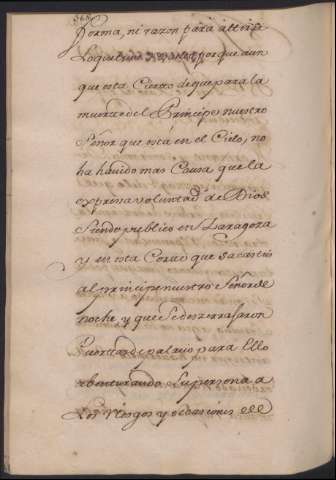 forma, ni razon para
porque aun
que esta Cierto de que para la
muerte del Principe nuestro
Señor que está en el Cielo, no
ha havido mas Causa que la
expresa voluntad de Dios
Siendo publico en Zaragoza
y en esta Corte que sacasteis
al principe nuestro Señor de
noche, y que se deszerrajaron
Puertas de palacio para Ello
abenturando Su persona a
Los riesgos y ocasiones del